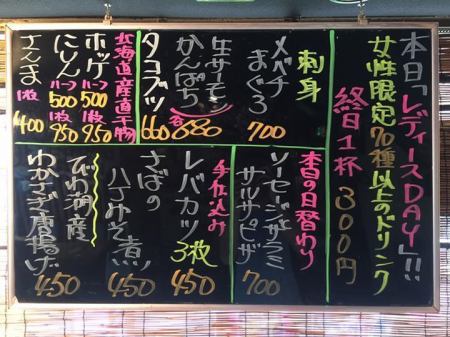 本日「レディースDAY」!!
女性限定70種以上のドリンク
終日1杯300円
刺身
メバチまぐろ 700
生サーモン
かんぱち
各680
タコブツ 660
北海道産直干物
ホッケ ハーフ500 1枚950
にしん ハーフ500 1枚950
さんま 1枚400
本日の日替わり
ソーセージサラミ
サルサピザ 700
手仕込み
レバカツ3枚 450
さばの
八丁みそ煮 450
びわ湖産
わかさぎ唐揚げ 450